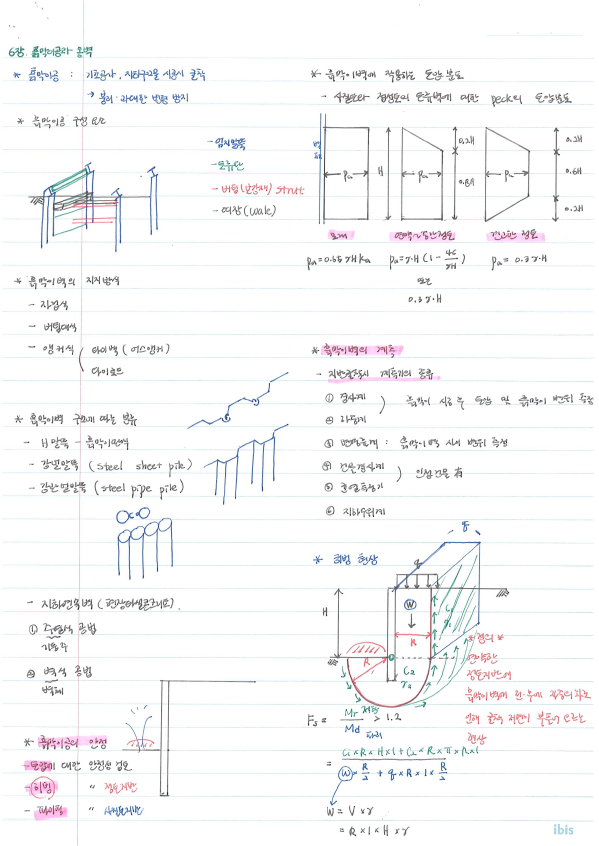 6장. 흙막이공과 옹벽
* 흙막이공 : 기초공사, 지하구조물 시공시 굴착
→ 붕괴·과대한 변형 방지
* 흙막이공 구성요소
- 엄지말뚝
- 토류판
- 버팀(보강재) strut
- 띠장(wale)
* 흙막이벽의 지지방식
- 자립식
- 버팀대식
- 앵커식 ( 타이백 (어스앵커)
타이로드
* 흙막이벽 구조에 따른 분류
- H말뚝 - 흙막이판벽
- 강널말뚝 (steel sheet pile)
- 강관널말뚝 (steel pipe pile)
- 지하연속벽 (현장타설콘크리트).
① 주열식 공법
기둥 주
② 벽식 공법
벽체
* 흙막이공의 안정
- 토압에 대한 안정성 검토
- 히빙 〃 점토지반
- 파이핑 〃 사질토지반
* 흙막이벽에 작용하는 토압분포
- 사질토와 점성토의 토류벽에 대한 peck의 토압분포
벽체
Pa
H
Pa
0.2H
0.8H
Pa
0.2H
0.6H
0.2H
모래
연약~중간점토
견고한 점토
Pa = 0.65γHKa
Pa = γ·H (1 - 4c/γH)
Pa = 0.3γ·H
또는
0.3γ·H
* 흙막이벽의 계측
- 지반굴착시 계측기의 종류
① 경사계
) 흙막이 시공 후 토압 및 흙막이 변위 측정
② 하중계
③ 변형률계 : 흙막이벽 시공 변위 측정
④ 건물경사계
) 인접건물 有
⑤ 균열측정기
⑥ 지하수위계
* 히빙 현상
q
q
H
W
R
R
C1
γ1
C2
γ2
* 정의 *
연약한
점토지반에
흙막이벽체 전·후에 하중의 차로
인해 굴착 저면이 부풀어 오르는
현상
Fs = Mr 저항 / Md 활동 > 1.2
= C1×R×H×1 + C2×R×π×R×1 / W×R/2 + q×R×1×R/2
W = V×γ
= R×1×H×γ
ibis